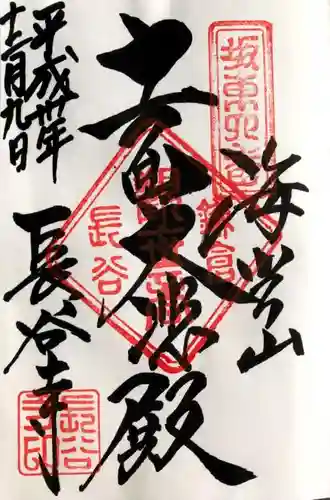 坂東四番
海光山
十一面大悲殿
鎌倉
長谷
平成卅年
十二月九日
長谷寺
長谷寺印